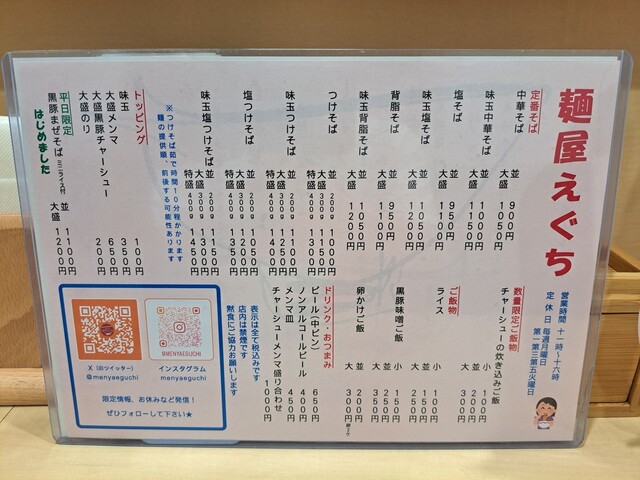 麺屋えぐち
営業時間 十一時～十六時
定休日 毎週月曜日
第一第三第五火曜日
定番そば
中華そば
並 900円
大盛
味玉中華そば
並 1000円
大盛
塩そば
並 950円
大盛 1100円
味玉塩そば
並 1050円
大盛 1200円
背脂そば
並 950円
大盛 1100円
味玉背脂そば
並 1050円
大盛 1200円
つけそば
並 200g 1000円
大盛 300g 1150円
特盛 400g 1300円
味玉つけそば
並 200g 1100円
大盛 300g 1250円
特盛 400g 1400円
塩つけそば
並 200g 1050円
大盛 300g 1200円
特盛 400g 1350円
味玉塩つけそば
並 200g 1150円
大盛 300g 1300円
特盛 400g 1450円
※つけそば茹で時間10分程かかります
麺の提供順、前後する可能性あります
トッピング
味玉 100円
大盛メンマ 350円
大盛黒豚チャーシュー 650円
大盛のり 200円
平日限定
黒豚まぜそば ミニライス付
並 1100円
大盛 1200円
はじめました
数量限定ご飯物
チャーシューの炊き込みご飯
小 100円
並 300円
ご飯物
ライス
小 100円
並 150円
大 200円
黒豚味噌ご飯
小 150円
並 250円
大 350円
卵かけご飯
並 200円
大 300円
ドリンク・おつまみ
ビール(中ビン) 650円
ノンアルコールビール 400円
メンマ皿 450円
チャーシューメンマ盛り合わせ 1000円
表示は全て税込みです
店内は禁煙です
黙食にご協力お願いします
@MENYAEGUCHI
X（旧ツイッター）
@menyaeguchi
インスタグラム
menyaeguchi
限定情報、お休みなど発信！
ぜひフォローして下さい★